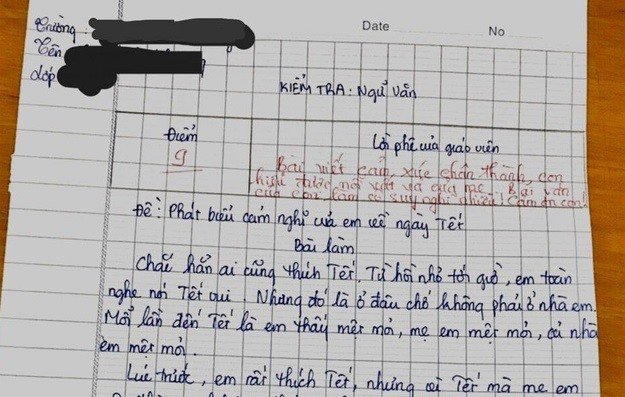 Date No
Trường:
Tên
Lớp
KIỂM TRA: Ngữ Văn
Điểm
Lời phê của giáo viên
9
Bài viết cảm xúc chân thành, con
hiểu được nỗi vất vả của mẹ. Bài văn
của con làm cô suy nghĩ nhiều! Cảm ơn con!
Đề: Phát biểu cảm nghĩ của em về ngày Tết
Bài làm
Chắc hẳn ai cũng thích Tết. Từ hồi nhỏ tới giờ, em toàn
nghe nói Tết vui. Nhưng đó là ở đâu chớ không phải ở nhà em.
Mỗi lần đến Tết là em thấy mệt mỏi, mẹ em mệt mỏi, cả nhà
em mệt mỏi.
Lúc trước, em rất thích Tết, nhưng vì Tết mà mẹ em